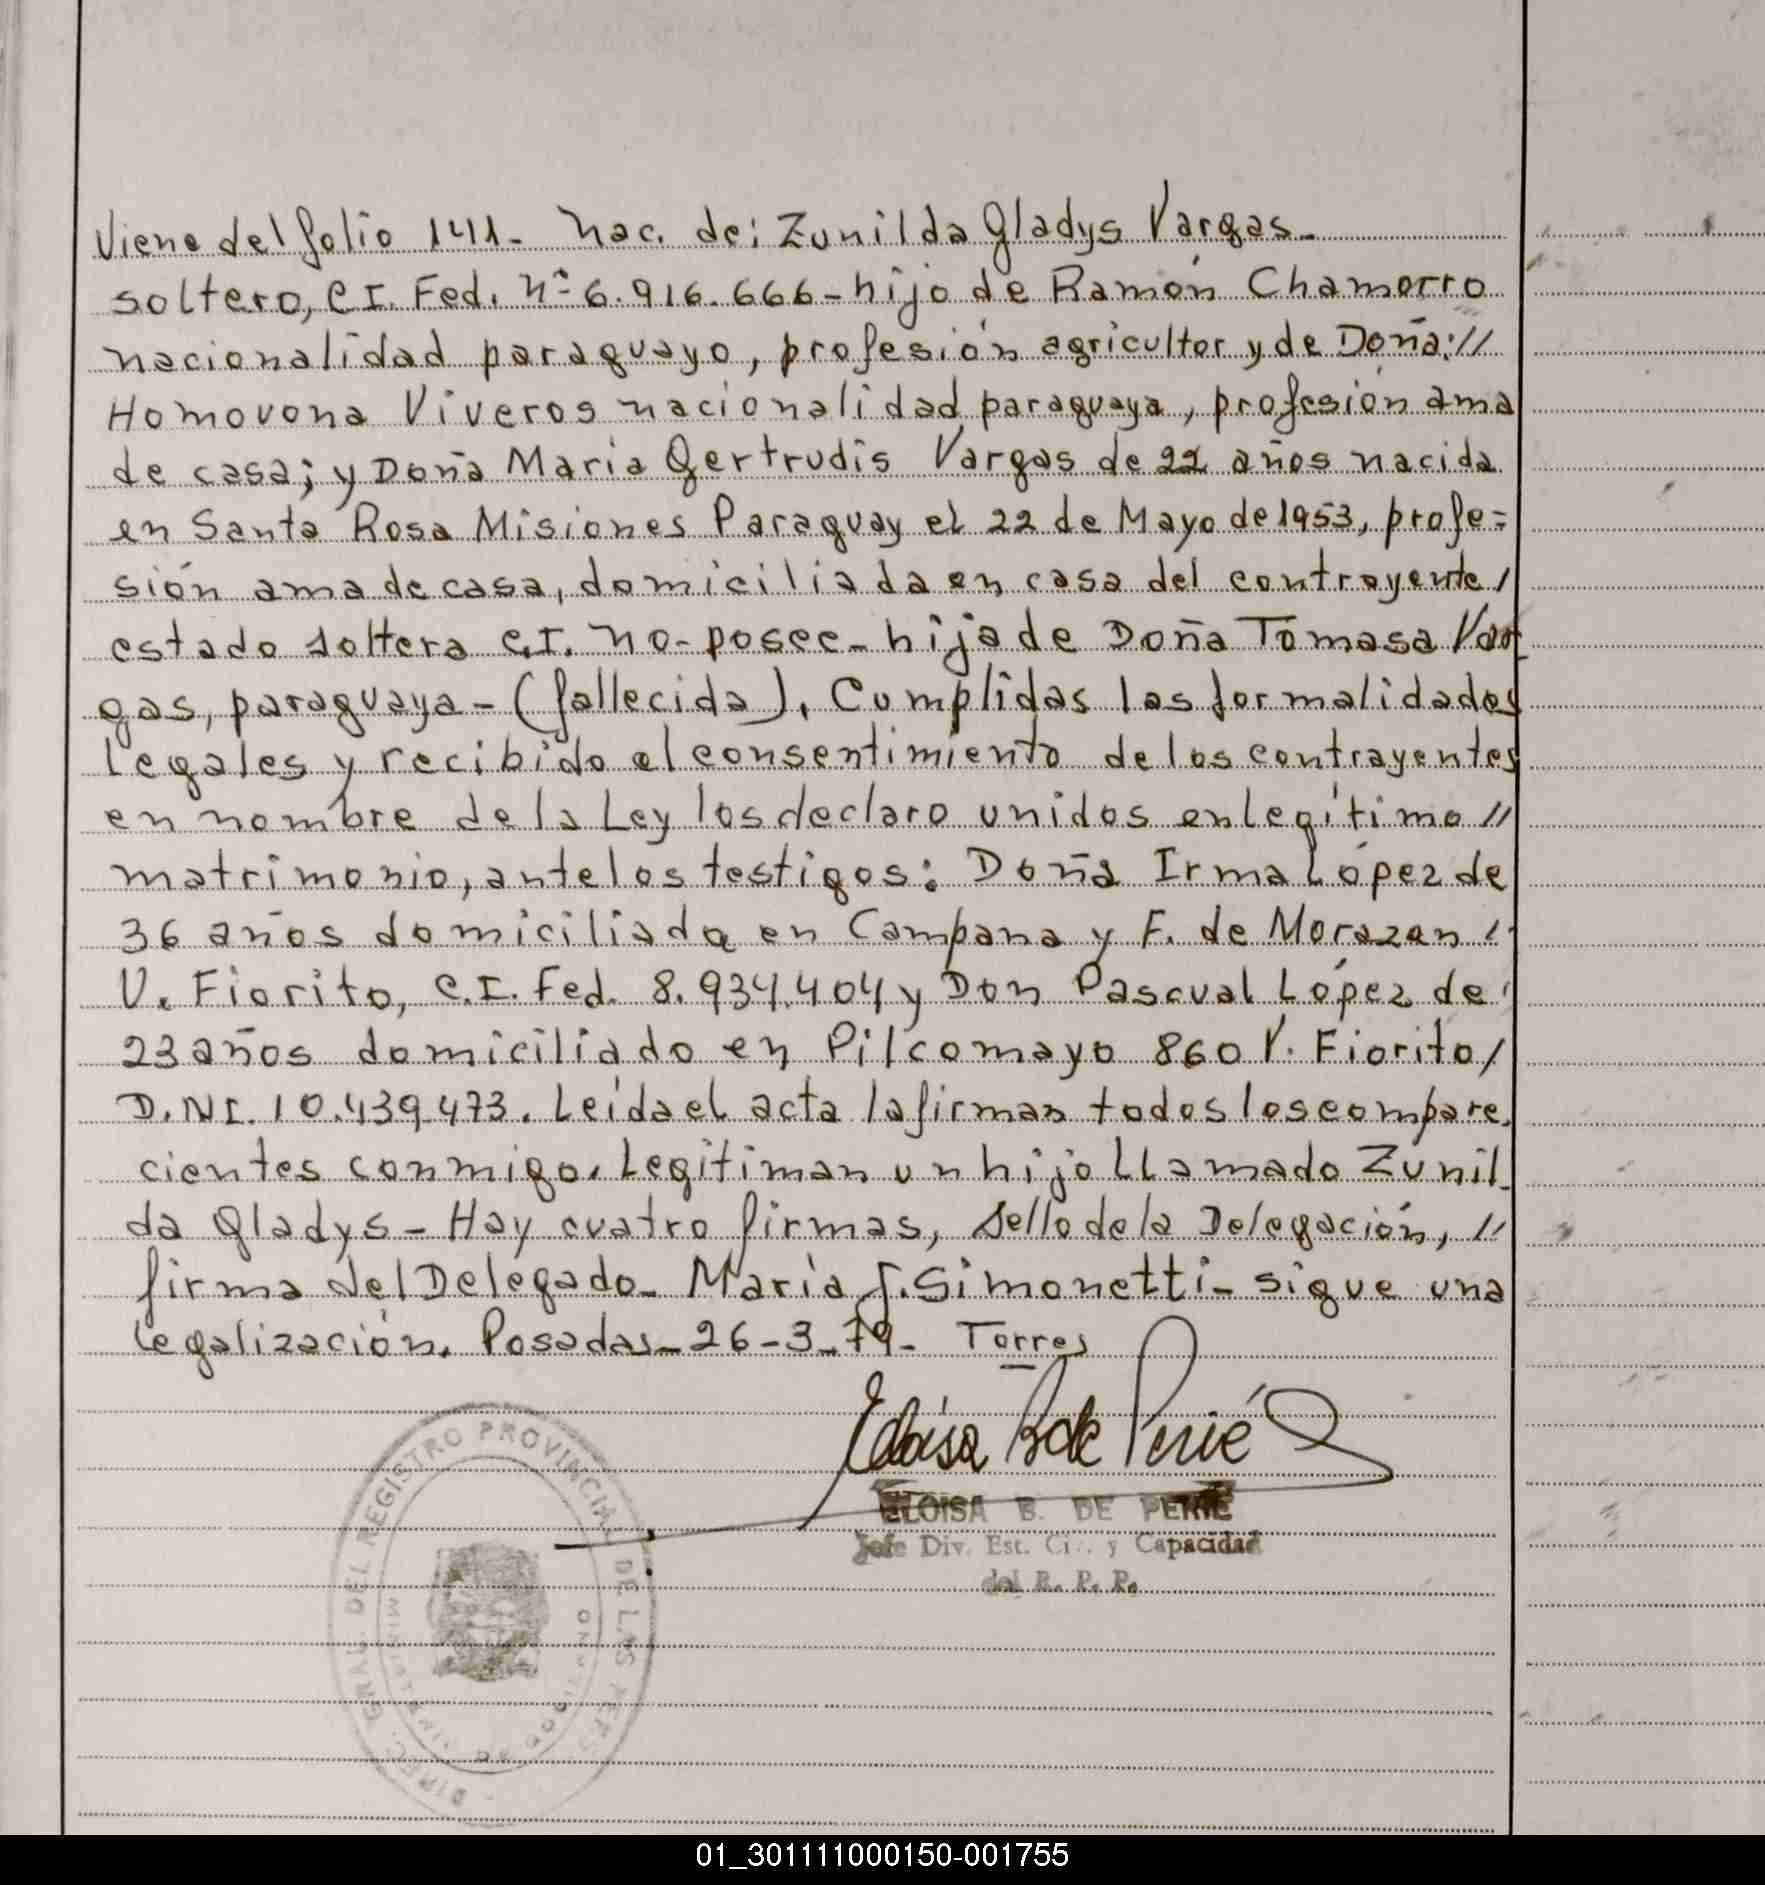 Viene del folio 141- Nac. de: Zunilda Gladys Vargas-
soltero, C.I. Fed. Nº 6.916.666-hijo de Ramón Chamorro
nacionalidad paraguayo, profesión agricultor y de Doña://
Homovona Viveros nacionalidad paraguaya, profesión ama
de casa; y Doña Maria Gertrudis Vargas de 22 años nacida
en Santa Rosa Misiones Paraguay el 22 de Mayo de 1953, profe=
sión ama de casa, domiciliada en casa del contrayente/
estado soltera C.I. no-posee-hija de Doña Tomasa Var
gas, paraguaya-(fallecida). Cumplidas las formalidades
legales y recibido el consentimiento de los contrayentes
en nombre de la Ley los declaro unidos en legítimo //
matrimonio, ante los testigos: Doña Irma López de
36 años domiciliada en Campana y F. de Morazan //
V. Fiorito, C.I. Fed. 8.934.404 y Don Pascual López de
23 años domiciliado en Pilcomayo 860 V. Fiorito/
D.NI. 10.439.473. Leída el acta la firman todos los compare-
cientes conmigo. Legitiman un hijo Llamado Zunil-
da Gladys- Hay cuatro firmas, sello de la Delegación, //
firma del Delegado- María J. Simonetti- sigue una
legalización. Posadas-26-3-79- Torres
Eloísa B de Perié
ELOISA B. DE PERIE
Jefe Div. Est. Ci.. y Capacidad
del R. P. P.
DIREC. GRAL. DEL REGISTRO PROVINCIAL DE LAS PERS
01_301111000150-001755